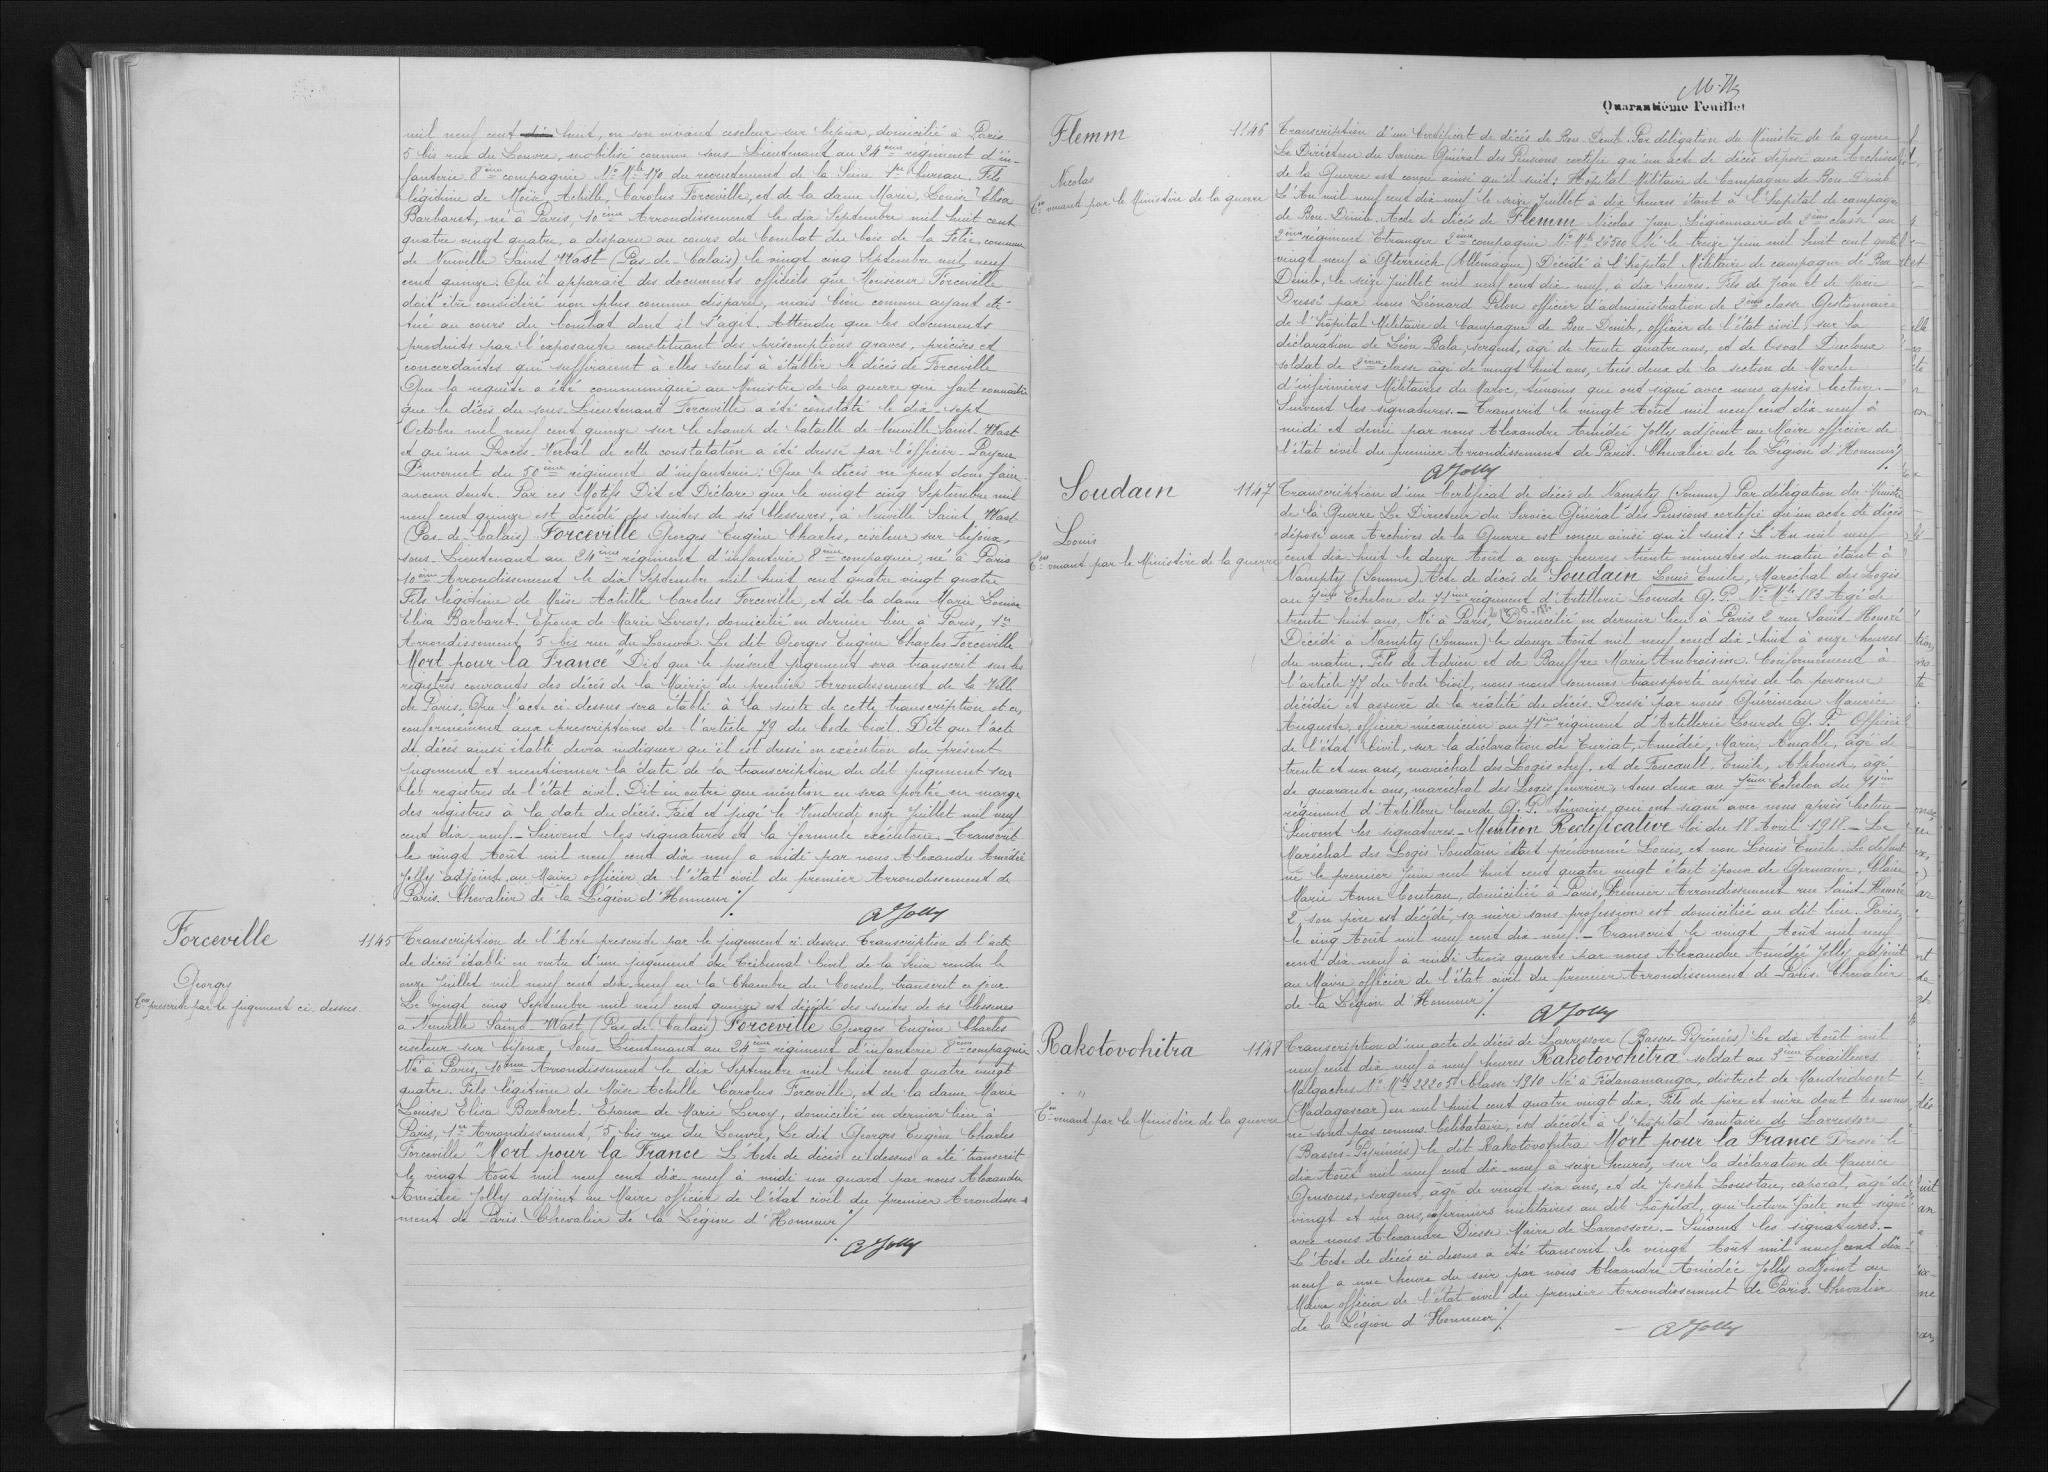 mil neuf cent dix huit, en son vivant ciseleur sur bijoux, domicilié à Paris
5 bis rue du Louvre, mobilisé comme sous Lieutenant au 24ème régiment d'in-
fanterie 8ème compagnie No Mle 170 du recrutement de la Seine 1er bureau. Fils
légitime de Moïse, Achille, Carolus Forceville, et de la dame Marie, Louise Elisa
Barbaret, né à Paris, 10ème Arrondissement le dix Septembre mil huit cent
quatre vingt quatre, a disparu au cours du Combat du bois de la Folie, commune
de Neuville Saint Wast (Pas-de-Calais) le vingt cinq Septembre mil neuf
cent quinze. Qu'il apparait des documents officiels que Monsieur Forceville
doit être considéré non plus comme disparu, mais bien comme ayant été
tué au cours du Combat dont il s'agit. Attendu que les documents
produits par l'exposante constituant des présomptions graves, précises et
concordantes qui suffiraient à elles seules à établir le décès de Forceville
Que la requête a été communiquée au Ministre de la guerre qui fait connaître
que le décès du sous-Lieutenant Forceville a été constaté le dix-sept
Octobre mil neuf cent quinze sur le champ de bataille de Neuville Saint-Wast
et qu'un Procès-Verbal de cette constatation a été dressé par l'officier-Payeur
du 50ème régiment d'infanterie: Que le décès ne peut donc faire
aucun doute. Par ces Motifs Dit et Déclare que le vingt cinq Septembre mil
neuf cent quinze est décédé des suites de ses blessures, à Neuville Saint Wast
(Pas-de-Calais) Forceville Georges Eugène Charles, ciseleur sur bijoux,
sous-Lieutenant au 24ème régiment d'infanterie 8ème compagnie, né à Paris
10ème Arrondissement le dix Septembre mil huit cent quatre vingt quatre
Fils légitime de Moïse Achille Carolus Forceville, et de la dame Marie Louise
Elisa Barbaret. Epoux de Marie Leroy, domicilié en dernier lieu à Paris, 1er
Arrondissement 5 bis rue du Louvre. Le dit Georges Eugène Charles Forceville
Mort pour la France" Dit que le présent jugement sera transcrit sur les
registres courants des décès de la Mairie du premier Arrondissement de la Ville
de Paris. Que l'acte ci-dessus sera établi à la suite de cette transcription et ce,
conformément aux prescriptions de l'article 79 du Code Civil. Dit que l'acte
de décès ainsi établi devra indiquer qu'il est dressé en exécution du présent
jugement et mentionner la date de la transcription du dit jugement sur
les registres de l'état civil. Dit en outre que mention en sera portée en marge
des registres à la date du décès. Fait et jugé le Vendredi onze Juillet mil neuf
cent dix-neuf. - Suivent les signatures et la formule exécutoire. - Transcrit
le vingt Août mil neuf cent dix neuf à midi par nous Alexandre Amédée
Jolly adjoint au Maire officier de l'état civil du premier Arrondissement de
Paris. Chevalier de la Légion d'Honneur ./.
A Jolly
Forceville
Georges
Con prescrite par le jugement ci-dessus.
1145
Transcription de l'Acte prescrite par le jugement ci dessus. Transcription de l'acte
de décès établi en vertu d'un jugement du Tribunal Civil de la Seine rendu le
onze Juillet mil neuf cent dix neuf en la Chambre du Conseil, transcrit ce jour.
Le vingt cinq Septembre mil neuf cent quinze est décédé des suites de ses blessures
à Neuville Saint Wast (Pas-de-Calais) Forceville Georges Eugène Charles
ciseleur sur bijoux Sous-Lieutenant au 24ème régiment d'infanterie 8ème compagnie
Né à Paris, 10ème Arrondissement le dix Septembre mil huit cent quatre vingt
quatre. Fils légitime de Moïse Achille Carolus Forceville, et de la dame Marie
Louise Elisa Barbaret. Epoux de Marie Leroy, domicilié en dernier lieu à
Paris, 1er Arrondissement, 5 bis rue du Louvre, Le dit Georges Eugène Charles
Forceville "Mort pour la France L'Acte de décès ci-dessus a été transcrit
le vingt Août mil neuf cent dix neuf à midi un quart par nous Alexandre
Amédée Jolly adjoint au Maire officier de l'état civil du premier Arrondisse-
ment de Paris. Chevalier de la Légion d'Honneur ./.
A Jolly
Quarantième Feuillet
Flemm
Nicolas
Con venant par le Ministère de la guerre
1146
Transcription d'un Certificat de décès de Bou-Denib. Par délégation du Ministre de la guerre
Le Directeur du Service Général des Pensions certifie qu'un acte de décès déposé aux Archives
de la Guerre est conçu ainsi qu'il suit: Hôpital Militaire de Campagne de Bou Denib
L'An mil neuf cent dix neuf le seize Juillet à dix heures étant à l'hôpital de campagne
de Bou-Denib. Acte de décès de Flemm Nicolas Jean, Légionnaire de 2ème classe au
2ème régiment Etranger 2ème compagnie No Mle Né le treize Juin mil huit cent quatre
vingt neuf à (Allemagne) Décédé à l'hôpital Militaire de campagne de Bou
Denib, le seize Juillet mil neuf cent dix neuf, à dix heures. Fils de Jean et de Marie
Dressé par nous Léonard Pelon officier d'administration de 2ème classe Gestionnaire
de l'hôpital Militaire de Campagne de Bou-Denib, officier de l'état civil, sur la
déclaration de Léon Bala, sergent, âgé de trente quatre ans, et de Osval Ducloux
soldat de 2ème classe âgé de vingt huit ans, tous deux de la section de Marche
d'infirmiers Militaires du Maroc, témoins qui ont signé avec nous après lecture. -
Suivent les signatures. - Transcrit le vingt Août mil neuf cent dix neuf à
midi et demie par nous Alexandre Amédée Jolly adjoint au Maire officier de
l'état civil du premier Arrondissement de Paris. Chevalier de la Légion d'Honneur ./.
A Jolly
Soudain
Louis
Con venant par le Ministère de la guerre
1147
Transcription d'un Certificat de décès de Nampty (Somme) Par délégation du Ministre
de la Guerre Le Directeur du Service Général des Pensions certifie qu'un acte de décès
déposé aux Archives de la Guerre est conçu ainsi qu'il suit: L'An mil neuf
cent dix huit le douze Août à onze heures trente minutes du matin étant à
Nampty (Somme) Acte de décès de Soudain Louis Emile, Maréchal des Logis
au 7ème Echelon du 71ème régiment d'Artillerie Lourde G. P. No Mle 113 Agé de
trente huit ans, Né à Paris, Domicilié en dernier lieu à Paris 2 rue Saint-Honoré
Décédé à Nampty (Somme) le douze Août mil neuf cent dix-huit à onze heures
du matin. Fils de Adrien et de Bauffre Marie Ambroisine. Conformément à
l'article 77 du Code Civil, nous nous sommes transporté auprès de la personne
décédée et assuré de la réalité du décès. Dressé par nous Guérineau Maurice
Auguste, officier mécanicien au 71ème régiment d'Artillerie Lourde G. P. Officier
de l'état Civil, sur la déclaration de Curiat, Amédée, Marie, Amable, âgé de
trente et un ans, maréchal des Logis chef, et de Foucault, Emile, Alphonse, âgé
de quarante ans, maréchal des Logis fourrier, tous deux au 7ème Echelon du 71ème
régiment d'Artillerie lourde G. P. témoins, qui ont signé avec nous après lecture -
Suivent les signatures. - Mention Rectificative Loi du 18 Avril 1918. - Le
Maréchal des Logis Soudain était prénommé Louis, et non Louis Emile. Le défunt
né le premier Juin mil huit cent quatre vingt était époux de Germaine, Claire
Marie Anne Couteau, domiciliée à Paris, Premier Arrondissement rue Saint-Honoré
2, son père est décédé, sa mère sans profession est domiciliée au dit lieu. Paris,
le cinq Août mil neuf cent dix-neuf. - Transcrit le vingt Août mil neuf
cent dix-neuf à midi trois quarts par nous Alexandre Amédée Jolly adjoint
au Maire officier de l'état civil du premier Arrondissement de Paris. Chevalier
de la Légion d'Honneur ./.
A Jolly
Rakotovohitra
"
Con venant par le Ministère de la guerre
1148
Transcription d'un acte de décès de Larressore (Basses-Pyrénées) Le dix Août mil
neuf cent dix neuf à neuf heures Rakotovohitra soldat au 3ème Tirailleurs
Malgaches No Mle 22205 Classe 1910 Né à Fidanamanga, district de
(Madagascar) en mil huit cent quatre vingt dix, Fils de père et mère dont les noms
ne sont pas connus. Célibataire, est décédé à l'hôpital sanitaire de Larressore
(Basses-Pyrénées) le dit Rakotovohitra Mort pour la France Dressé le
dix Août mil neuf cent dix-neuf à seize heures, sur la déclaration de Maurice
Gensous, sergent, âgé de vingt six ans, et de Joseph Loustau, caporal, âgé de
vingt et un ans, infirmiers militaires au dit hôpital, qui lecture faite ont signé
avec nous Alexandre Diesse Maire de Larressore. - Suivent les signatures. -
L'Acte de décès ci dessus a été transcrit le vingt Août mil neuf cent dix-
neuf à une heure du soir par nous Alexandre Amédée Jolly adjoint au
Maire officier de l'état civil du premier Arrondissement de Paris. Chevalier
de la Légion d'Honneur ./.
A Jolly